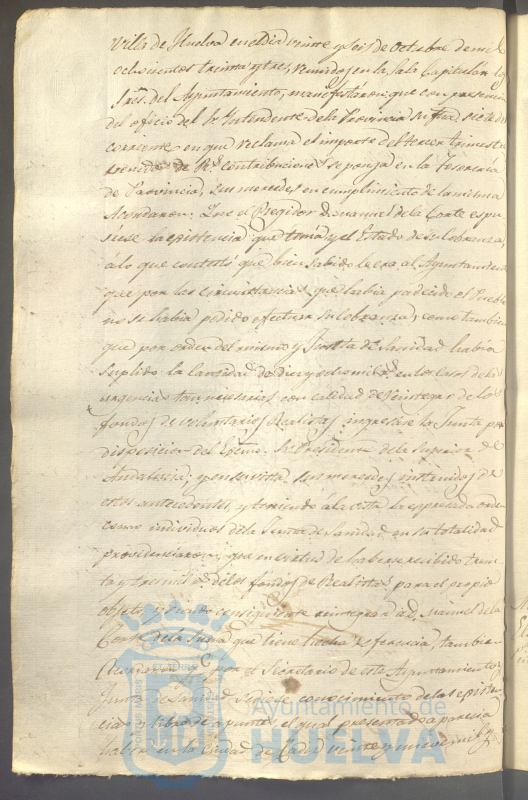 Villa de Huelva en el dia veinte y seis de Octubre de mil
ochocientos treinta y tres, reunidos en la Sala Capitular los
Sres. del Ayuntamiento, manifestaron: que con presencia
del oficio del Sr Yntendente de la Provincia su fha. siete del
corriente en que reclama el importe del tercer trimestre
vencido de Rs. contribuciones se ponga en la Tesoreria
de Provincia, sus mercedes en cumplimiento de la misma
Acordaron: Que el Regidor D. Manuel de la Corte espu-
siese la existencia que tenia y el Estado de su Cobranza,
á lo que contestó que bien sabido le era al Ayuntamiento
que por las circunstancias que habia padecido el Pueblo
no se habia podido efectuar su cobranza, como tambien
que por orden del mismo y Junta de Sanidad habia
suplido la cantidad de diez y ocho mil rs. en los casos de la
urgencia tan necesarias con calidad de reintegro de los
fondos de voluntarios Realistas ingrese la Junta por
disposicion del Exmo. Sr Presidente de la Superior de
Andalucia; y en su vista sus mercedes instruidos de
estos antecedentes, y teniendo á la vista la espresada orden
como individuos de la Junta de Sanidad en su totalidad
providenciaron: que en virtud de haberse recibido trein-
ta y tres mil rs. de los fondos de Realistas para el propio
objeto, y siendo consiguiente reintegrar á D. Manuel de la
Corte de la suma que tiene hecha referencia, tambien
Acordaron: que por el Secretario de este Ayuntamiento y
Junta de Sanidad se dé conocimiento de las existen-
cias y libro de apuntes el qual presentado aparecia
haber en la Ciudad de Cadiz veinte y nueve mil rs.
Ayuntamiento de
HUELVA